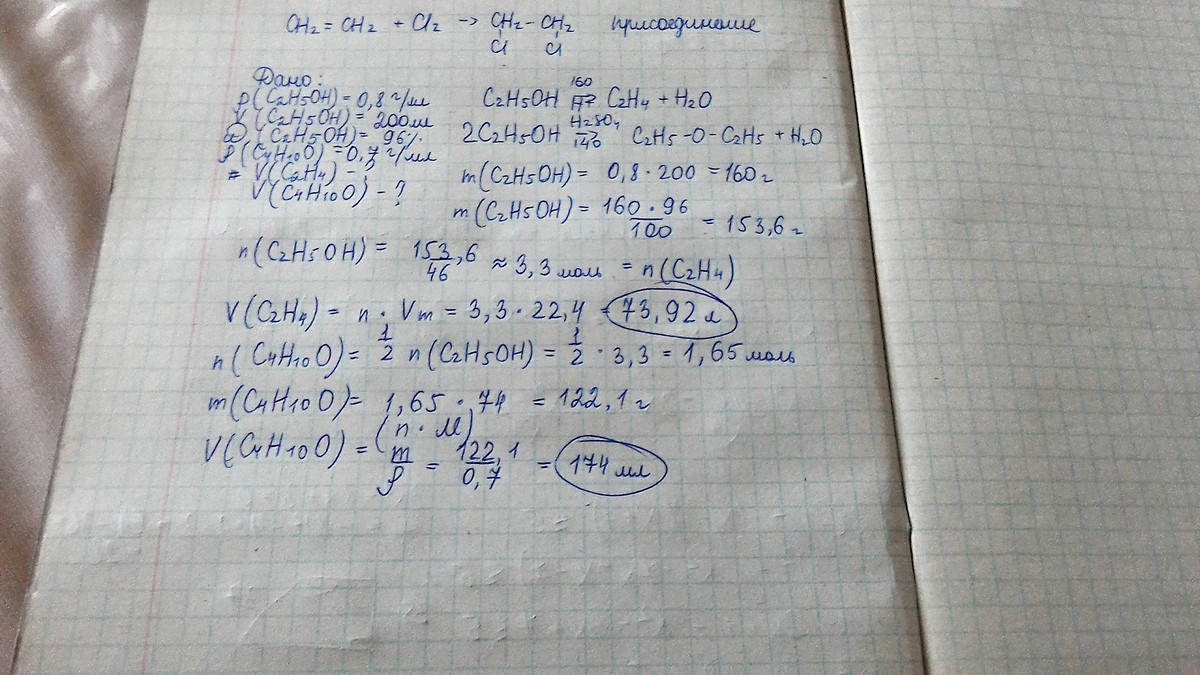 CH2 = CH2 + Cl2 → CH2 - CH2 присоединение
Cl Cl
Дано:
ρ(C2H5OH) = 0,8 г/мл
V(C2H5OH) = 200мл
ω(C2H5OH) = 96%
ρ(C4H10O) = 0,7 г/мл
V(C2H4) - ?
V(C4H10O) - ?
160
C2H5OH ⇄ C2H4 + H2O
H2SO4
2C2H5OH → C2H5 - O - C2H5 + H2O
140
m(C2H5OH) = 0,8 · 200 = 160 г
m(C2H5OH) = 160 · 96 / 100 = 153,6 г
n(C2H5OH) = 153,6 / 46 ≈ 3,3 моль = n(C2H4)
V(C2H4) = n · Vm = 3,3 · 22,4 = 73,92 л
n(C4H10O) = 1/2 n(C2H5OH) = 1/2 · 3,3 = 1,65 моль
m(C4H10O) = 1,65 · 74 = 122,1 г
(n · M)
V(C4H10O) = m/ρ = 122,1 / 0,7 = 174 мл